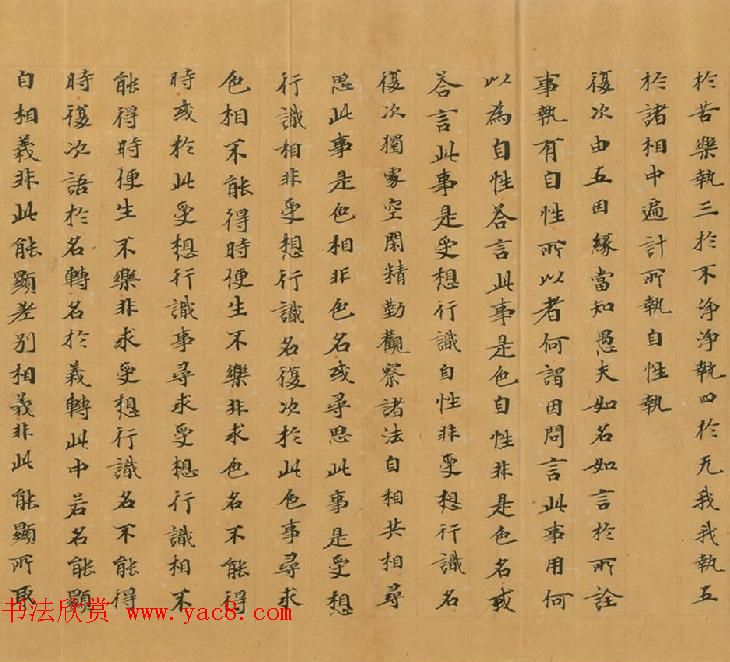 於苦樂執三於不淨淨執四於无我我執五
於諸相中遍計所執自性執
復次由五因緣當知愚夫如名如言於所詮
事執有自性所以者何謂因問言此事用何
以為自性荅言此事是色自性非是色名或
荅言此事是受想行識自性非受想行識名
復次獨處空閑精勤觀察諸法自相共相尋
思此事是色相非色名或尋思此事是受想
行識相非受想行識名復次於此色事尋求
色相不能得時便生不樂非求色名不能得
時或於此受想行識事尋求受想行識相不
能得時便生不樂非求受想行識名不能得
時復次語於名轉名於義轉此中若名能顯
自相義非此能顯差別相義非此能顯所取
书法欣赏 www.yac8.com